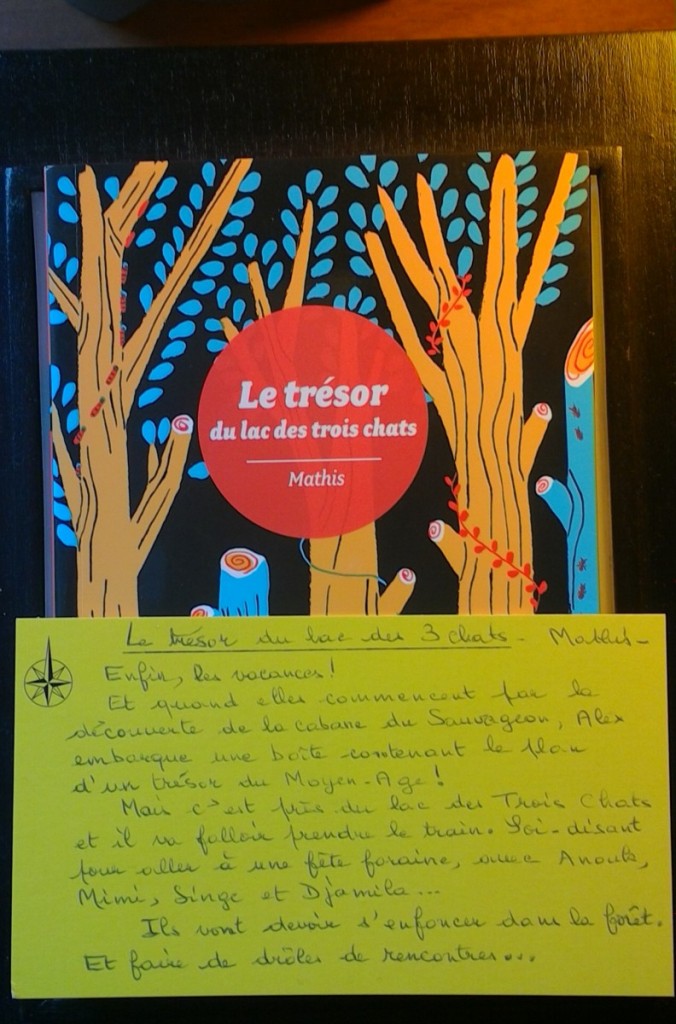 Le trésor
du lac des trois chats
Mathis
Le trésor du lac des 3 chats - Mathis -
Enfin, les vacances !
Et quand elles commencent par la
découverte de la cabane du Sauvageon, Alex
embarque une boîte contenant le plan
d'un trésor du Moyen-Age !
Mais c'est près du lac des Trois Chats
et il va falloir prendre le train. Soi-disant
pour aller à une fête foraine, avec Anouk,
Mimi, Singe et Djamila...
Ils vont devoir s'enfoncer dans la forêt.
Et faire de drôles de rencontres...